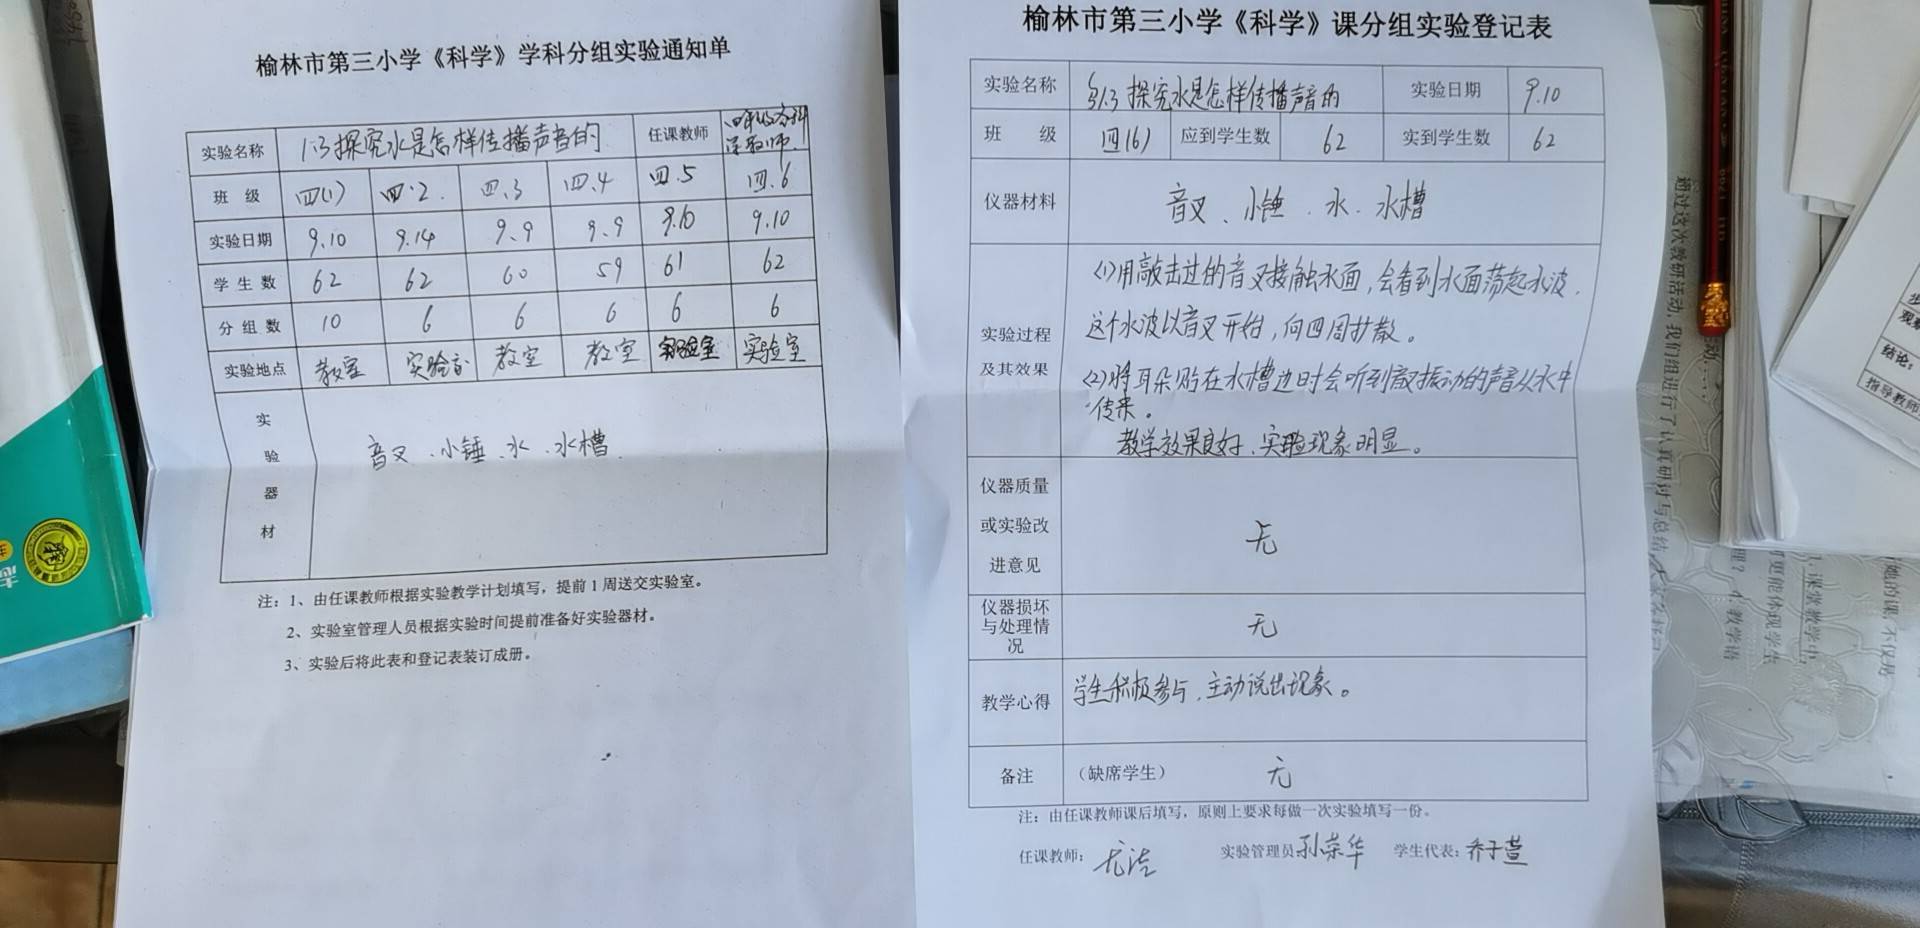 榆林市第三小学《科学》学科分组实验通知单
实验名称 1.3探究水是怎样传播声音的 任课教师 四年级各科学教师
班 级 四(1) 四.2. 四.3 四.4 四.5 四.6
实验日期 9.10 9.14 9.9 9.9 9.10 9.10
学生数 62 62 60 59 61 62
分组数 10 6 6 6 6 6
实验地点 教室 实验室 教室 教室 实验室 实验室
实验器材 音叉、小锤、水、水槽
注：1、由任课教师根据实验教学计划填写，提前1周送交实验室。
2、实验室管理人员根据实验时间提前准备好实验器材。
3、实验后将此表和登记表装订成册。
榆林市第三小学《科学》课分组实验登记表
实验名称 §1.3 探究水是怎样传播声音的 实验日期 9.10
班 级 四(6) 应到学生数 62 实到学生数 62
仪器材料 音叉、小锤、水、水槽
实验过程及其效果
(1)用敲击过的音叉接触水面,会看到水面荡起水波,
这个水波以音叉开始,向四周扩散。
(2)将耳朵贴在水槽边时会听到音叉振动的声音从水中
传来。
教学效果良好、实验现象明显。
仪器质量
或实验改
进意见
无
仪器损坏
与处理情
况
无
教学心得 学生积极参与,主动说出现象。
备注 (缺席学生) 无
注：由任课教师课后填写，原则上要求每做一次实验填写一份。
任课教师： 尤洁 实验管理员 孙荣华 学生代表: 乔子萱
通过这次教研活动,我们组进行了认真研讨与总结
课堂教学中
更能体现学生
教学语
结论：
指导教师